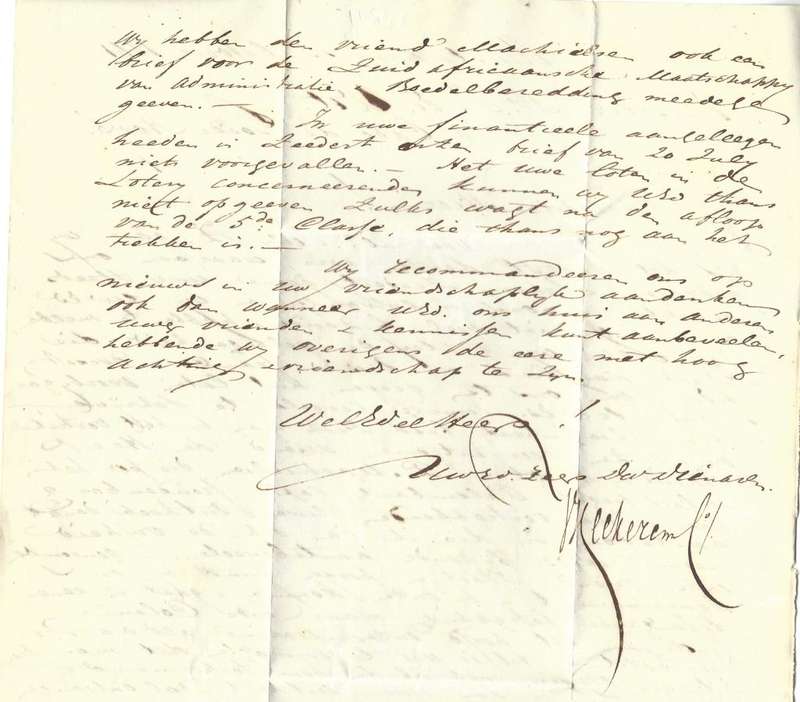 Wy hebben den vriend Machielsen ook een
brief voor de Zuid afrikaansche Maatschappy
van administratie & Boedelberedding meedege
geeven. —
In uwe financieele aangeleegen
heeden is zeedert onzen brief van 20 July
niets voorgevallen. — Het uwe loten in de
Lotery concerneerende kunnen wy UEd thans
niet opgeeven zulks wagt na den afloop
van de 5de Classe, die thans nog aan het
trekken is. —
Wy recommandeeren ons op
nieuws in uw vriendschaplyk aandenken
ook dan wanneer UEd. ons huis aan anderen
uwer vrienden & kennissen kunt aanbeveelen,
hebbende wy overigens de eere met hoog
achting & vriendschap te zyn.
WelEdel Heer !
UwEd. Zeer Dw Dienaren.